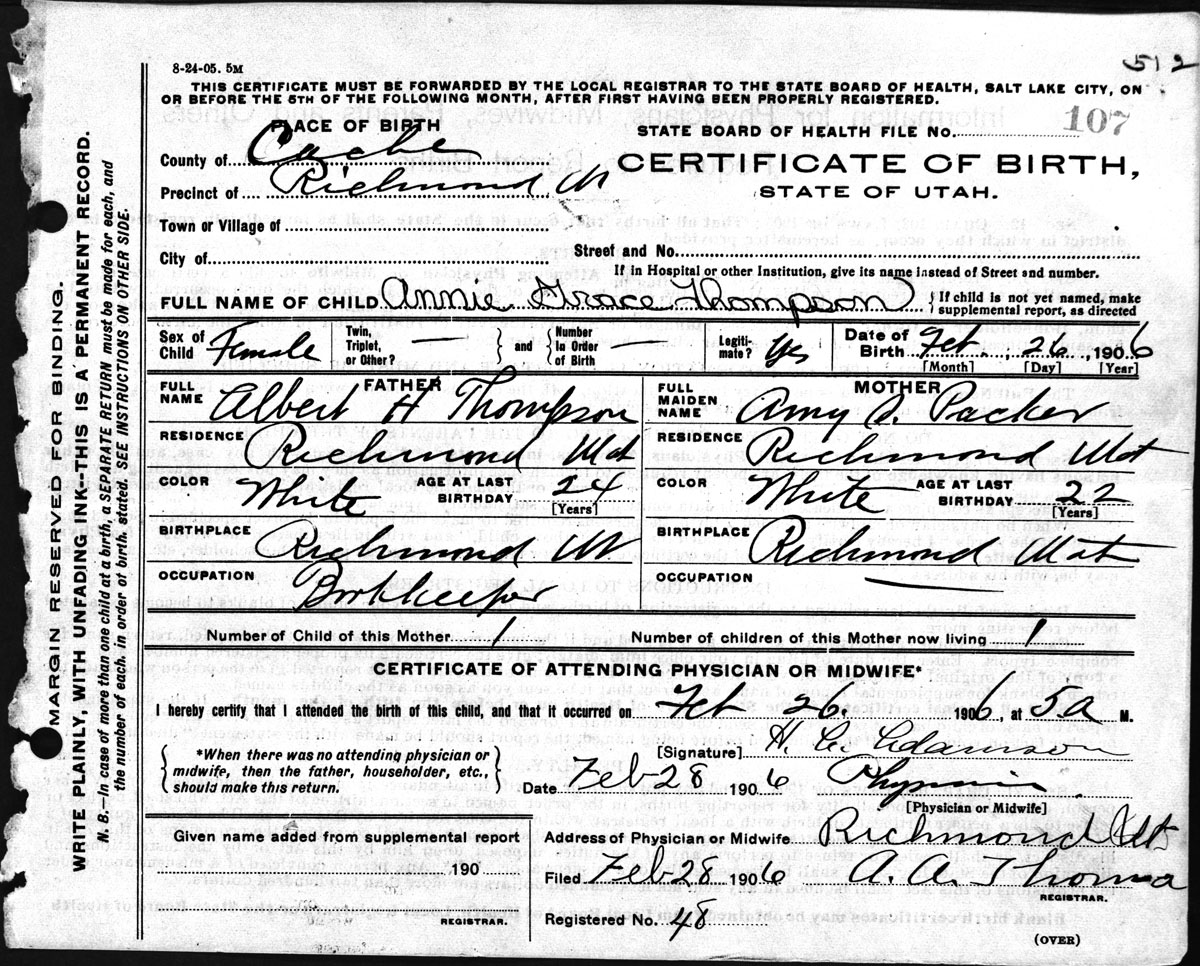 8-24-05. 5M
512
THIS CERTIFICATE MUST BE FORWARDED BY THE LOCAL REGISTRAR TO THE STATE BOARD OF HEALTH, SALT LAKE CITY, ON
OR BEFORE THE 5TH OF THE FOLLOWING MONTH, AFTER FIRST HAVING BEEN PROPERLY REGISTERED.
PLACE OF BIRTH
STATE BOARD OF HEALTH FILE No. 107
County of Cache
CERTIFICATE OF BIRTH,
Precinct of Richmond Ut
STATE OF UTAH.
Town or Village of
City of
Street and No.
If in Hospital or other Institution, give its name instead of Street and number.
FULL NAME OF CHILD Annie Grace Thompson { If child is not yet named, make supplemental report, as directed
Sex of Child Female Twin, Triplet, or Other? — } and { Number In Order of Birth — Legiti-mate? Yes Date of Birth Feb. , 26 , 1906
[Month] [Day] [Year]
FATHER
FULL NAME Albert H Thompson
RESIDENCE Richmond Utah
COLOR White AGE AT LAST BIRTHDAY 24 [Years]
BIRTHPLACE Richmond Ut
OCCUPATION Bookkeeper
MOTHER
FULL MAIDEN NAME Amy S. Packer
RESIDENCE Richmond Utah
COLOR White AGE AT LAST BIRTHDAY 22 [Years]
BIRTHPLACE Richmond Utah
OCCUPATION —
Number of Child of this Mother 1 Number of children of this Mother now living 1
CERTIFICATE OF ATTENDING PHYSICIAN OR MIDWIFE*
I hereby certify that I attended the birth of this child, and that it occurred on Feb 26 1906, at 5 a M.
{ *When there was no attending physician or midwife, then the father, householder, etc., should make this return. }
[Signature] H. C. Adamson
Date Feb 28 1906 Physician
[Physician or Midwife]
Given name added from supplemental report
190
REGISTRAR.
Address of Physician or Midwife Richmond Ut
Filed Feb 28 1906 A. A. Thomas
REGISTRAR.
Registered No. 48
(OVER)
MARGIN RESERVED FOR BINDING.
WRITE PLAINLY, WITH UNFADING INK--THIS IS A PERMANENT RECORD.
N. B.—In case of more than one child at a birth, a SEPARATE RETURN must be made for each, and
the number of each, in order of birth, stated. SEE INSTRUCTIONS ON OTHER SIDE.